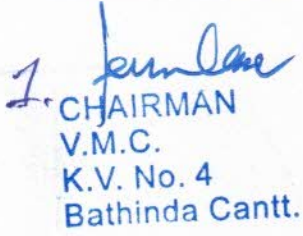 1.
CHAIRMAN
V.M.C.
K.V. No. 4
Bathinda Cantt.